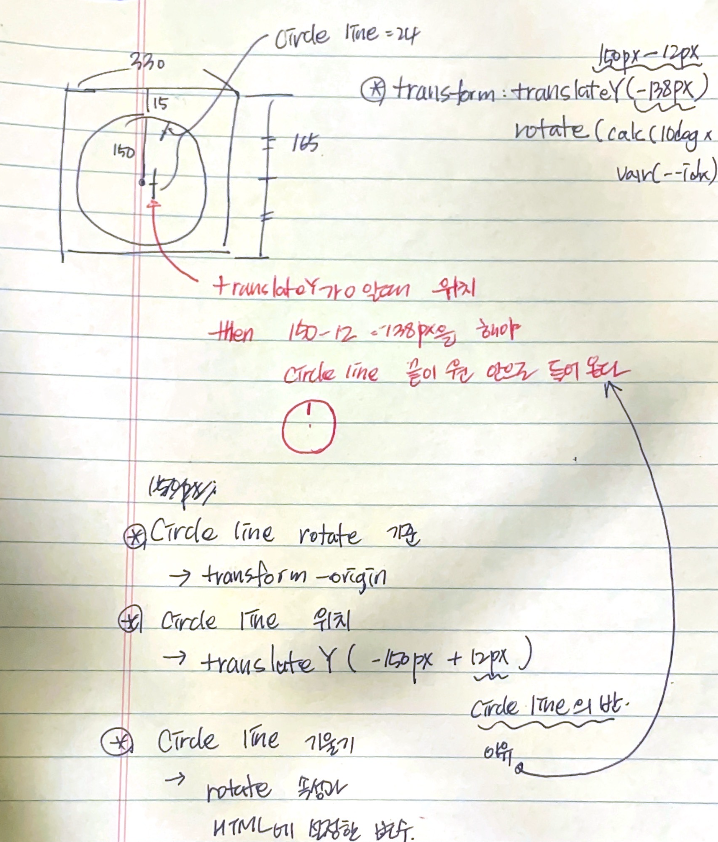 Circle line = 24
330
15
150
165
150px - 12px
* transform : translateY(-138px)
rotate (calc(10deg x
var(--idx)
translateY가 0 일때 위치
then 150-12 = -138px을 해야
Circle line 끝이 원 안으로 들어온다
* Circle line rotate 기준
→ transform-origin
* Circle line 위치
→ translateY ( -150px + 12px )
Circle line의 반.
이유
* Circle line 기울기
→ rotate 속성과
HTML에 설정한 변수.